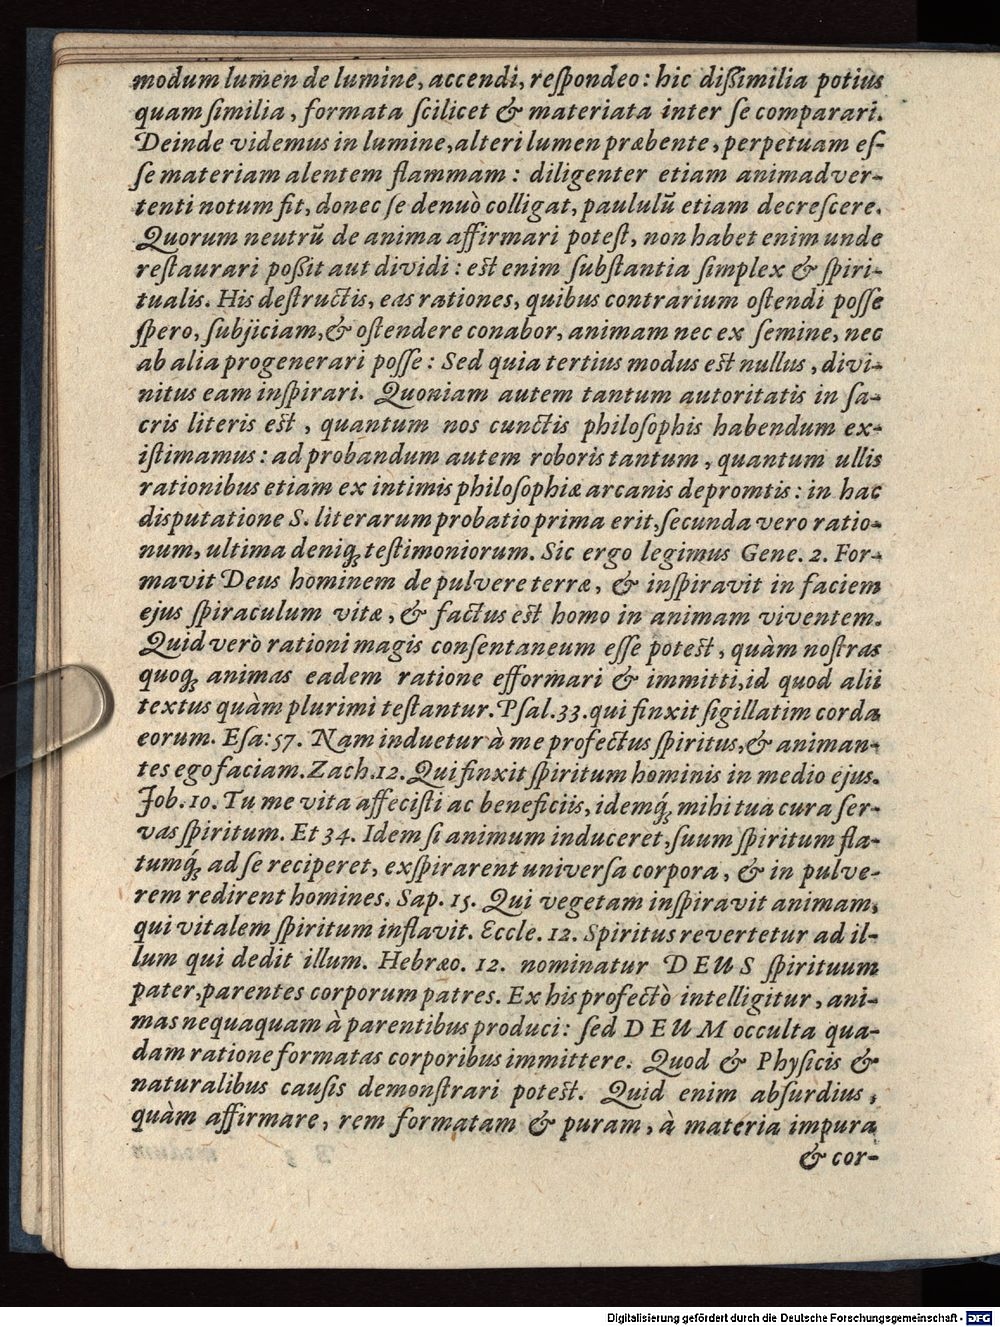 modum lumen de lumine, accendi, reſpondeo: hic dißimilia potius
quam ſimilia, formata ſcilicet & materiata inter ſe comparari.
Deinde videmus in lumine, alteri lumen præbente, perpetuam eſ-
ſe materiam alentem flammam: diligenter etiam animadver-
tenti notum fit, donec ſe denuò colligat, paululũ etiam decreſcere.
Quorum neutrũ de anima affirmari poteſt, non habet enim unde
reſtaurari poßit aut dividi: eſt enim ſubſtantia ſimplex & ſpiri-
tualis. His deſtructis, eas rationes, quibus contrarium oſtendi poſſe
ſpero, ſubjiciam, & oſtendere conabor, animam nec ex ſemine, nec
ab alia progenerari poſſe: Sed quia tertius modus eſt nullus, divi-
nitus eam inſpirari. Quoniam autem tantum autoritatis in ſa-
cris literis eſt, quantum nos cunctis philoſophis habendum ex-
iſtimamus: ad probandum autem roboris tantum, quantum ullis
rationibus etiam ex intimis philoſophiæ arcanis depromtis: in hac
disputatione S. literarum probatio prima erit, ſecunda vero ratio-
num, ultima deniq; teſtimoniorum. Sic ergo legimus Gene. 2. For-
mavit Deus hominem de pulvere terræ, & inſpiravit in faciem
ejus ſpiraculum vitæ, & factus eſt homo in animam viventem.
Quid verò rationi magis conſentaneum eſſe poteſt, quàm noſtras
quoq; animas eadem ratione efformari & immitti, id quod alii
textus quàm plurimi teſtantur. Pſal. 33. qui finxit ſigillatim corda
eorum. Eſa: 57. Nam induetur à me profectus ſpiritus, & animan-
tes ego faciam. Zach. 12. Qui finxit ſpiritum hominis in medio ejus.
Job. 10. Tu me vita affeciſti ac beneficiis, idemq́; mihi tua cura ſer-
vas ſpiritum. Et 34. Idem ſi animum induceret, ſuum ſpiritum fla-
tumq́; ad ſe reciperet, exſpirarent univerſa corpora, & in pulve-
rem redirent homines. Sap. 15. Qui vegetam inſpiravit animam,
qui vitalem ſpiritum inflavit. Eccle. 12. Spiritus revertetur ad il-
lum qui dedit illum. Hebræo. 12. nominatur DEUS ſpirituum
pater, parentes corporum patres. Ex his profectò intelligitur, ani-
mas nequaquam à parentibus produci: ſed DEUM occulta qua-
dam ratione formatas corporibus immittere. Quod & Phyſicis &
naturalibus cauſis demonſtrari poteſt. Quid enim abſurdius,
quàm affirmare, rem formatam & puram, à materia impura
& cor-
Digitalisierung gefördert durch die Deutsche Forschungsgemeinschaft - DFG